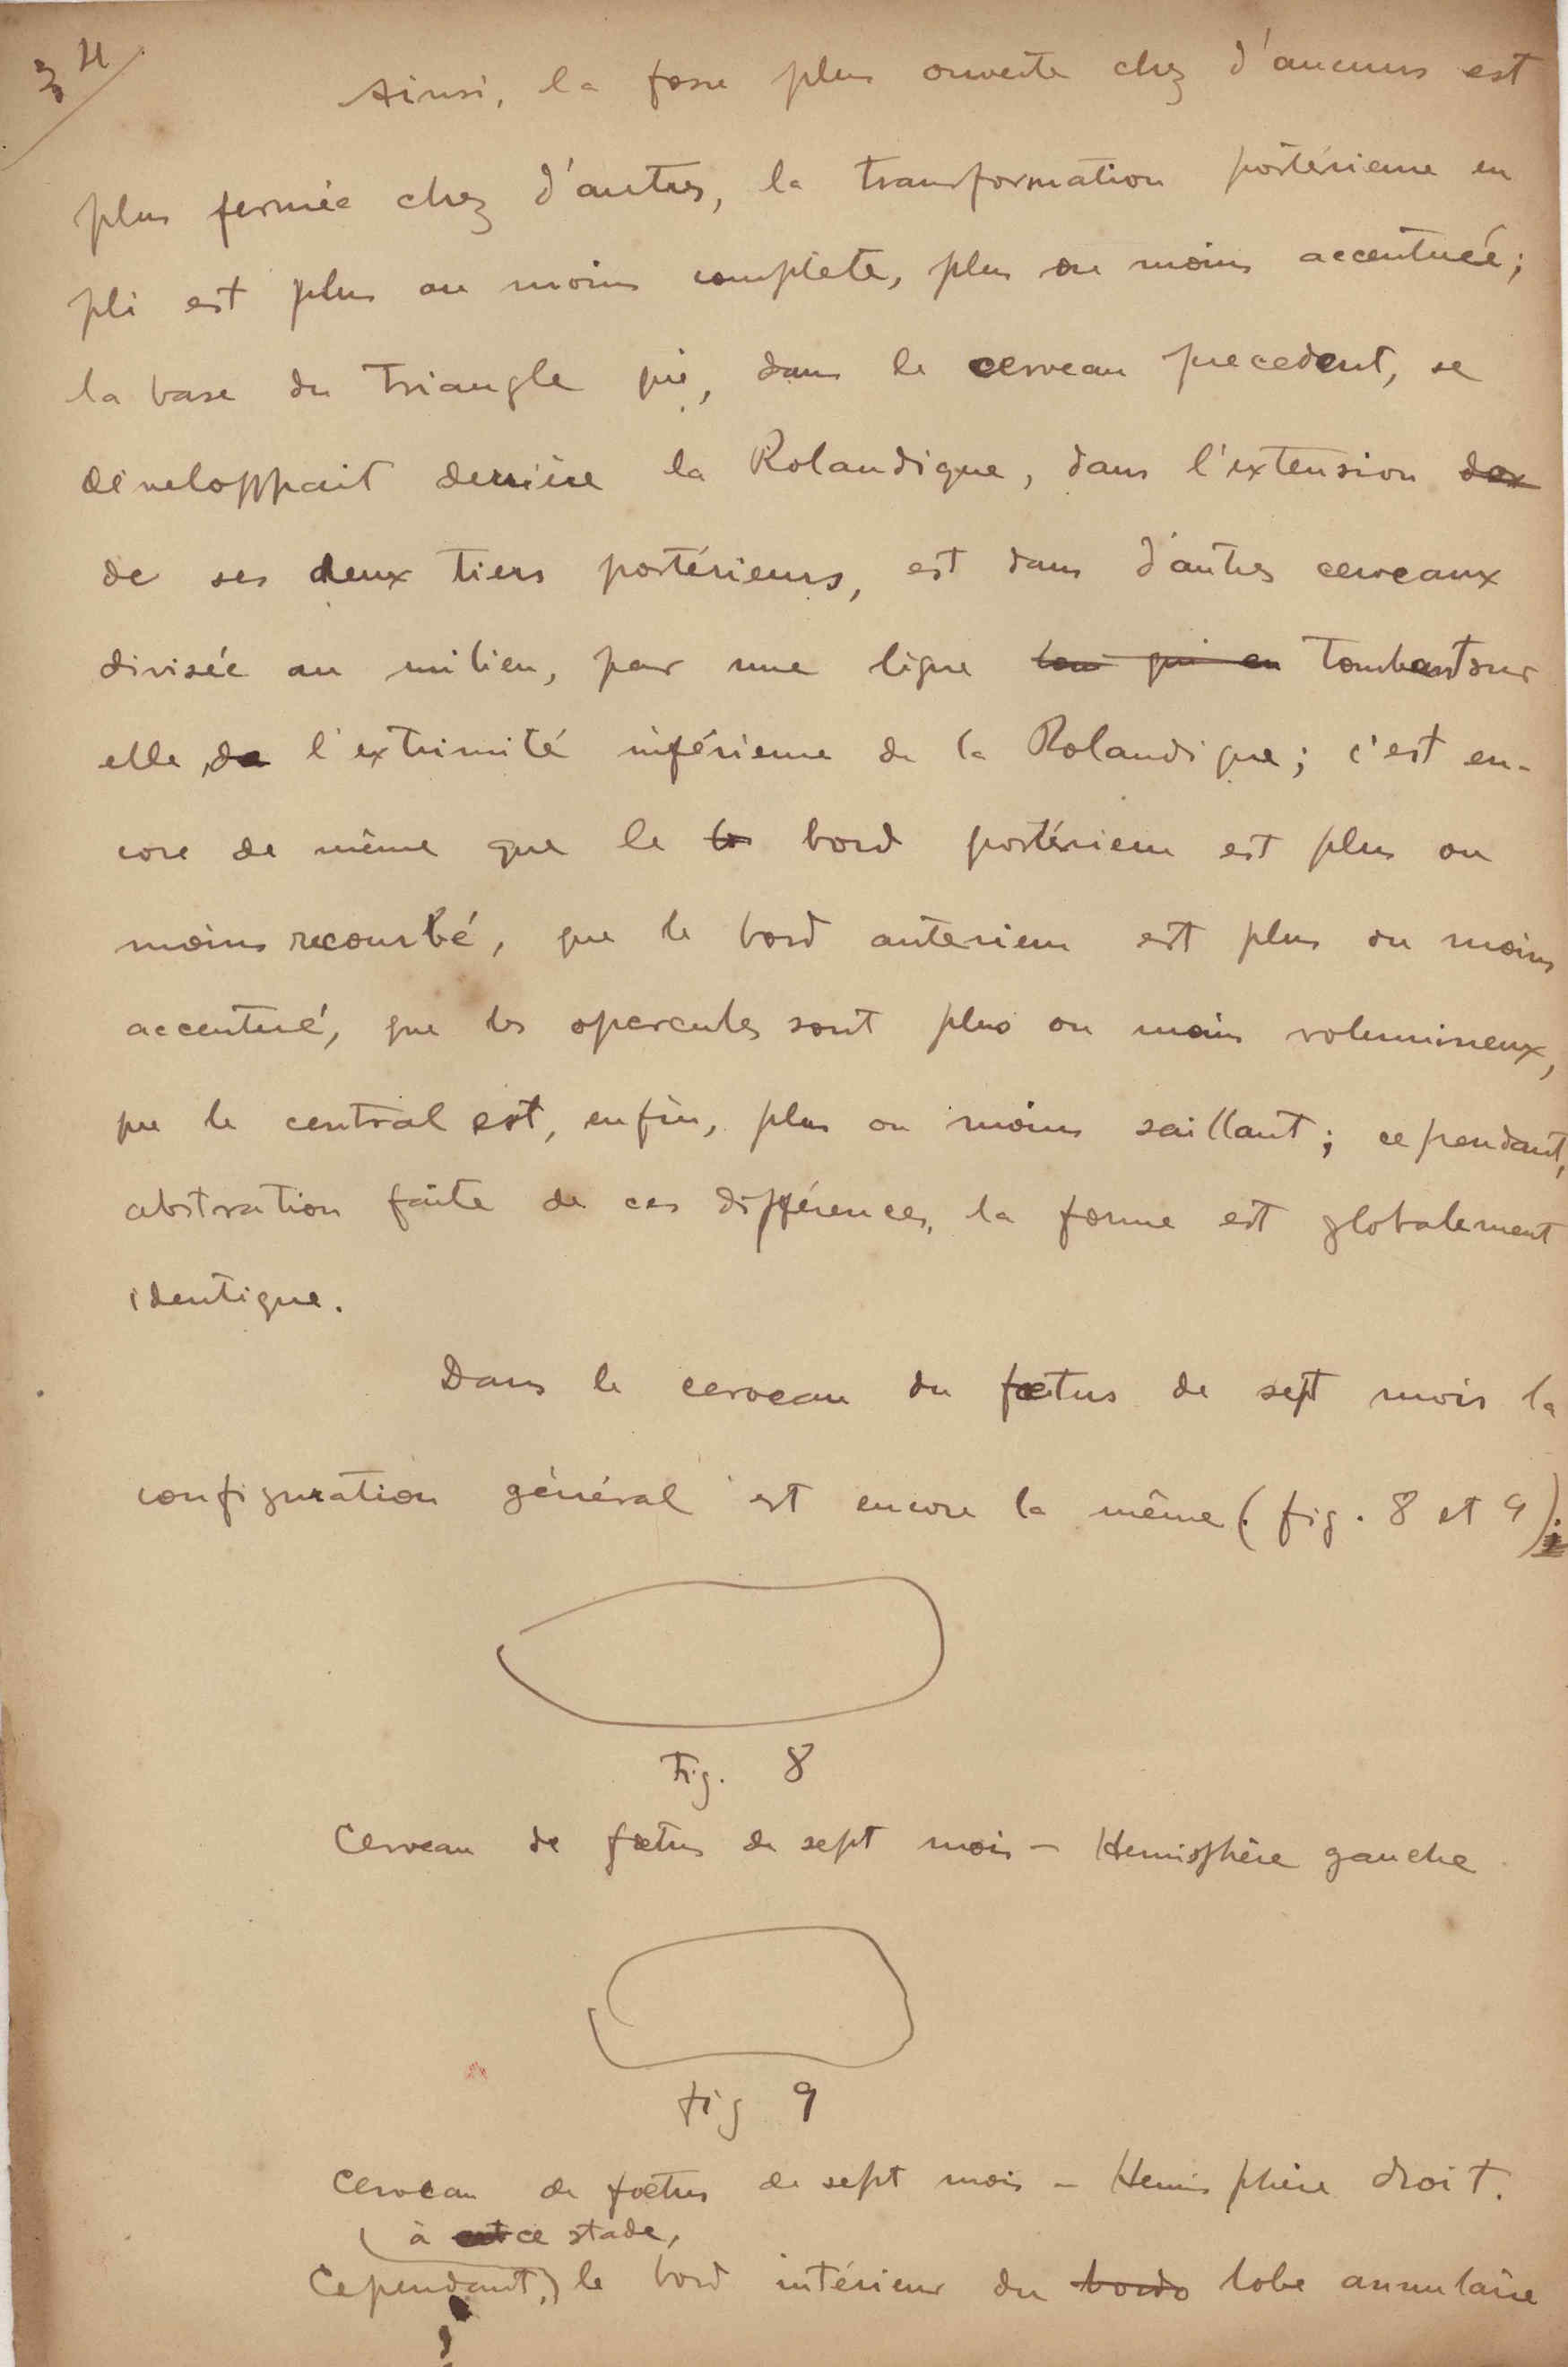 34
Ainsi, la fosse plus ouverte chez d'aucuns est
plus fermée chez d'autres, la transformation postérieure en
pli est plus ou moins complete, plus ou moins accentuée;
la base du triangle qui, dans le cerveau precedent, se
développait derrière la Rolandique, dans l'extension
de ses deux tiers postérieurs, est dans d'autres cerveaux
divisée au milieu, par une ligne tombant sur
elle, de l'extrimité inférieure de la Rolandique; c'est en-
core de même que le bord postérieur est plus ou
moins recourbé, que le bord anterieur est plus ou moins
accentué, que les opercules sont plus ou moins volumineux,
que le central est, enfin, plus ou moins saillant; cependant,
abstration faite de ces différences, la forme est globalement
identique.
Dans le cerveau du fœtus de sept mois la
configuration général est encore la même (fig. 8 et 9);
Fig. 8
Cerveau de fœtus de sept mois — Hemisphère gauche
fig 9
Cerveau de fœtus de sept mois — Hemisphère droit.
à ce stade,
Cependant, le bord intérieur du bords lobe annulaire